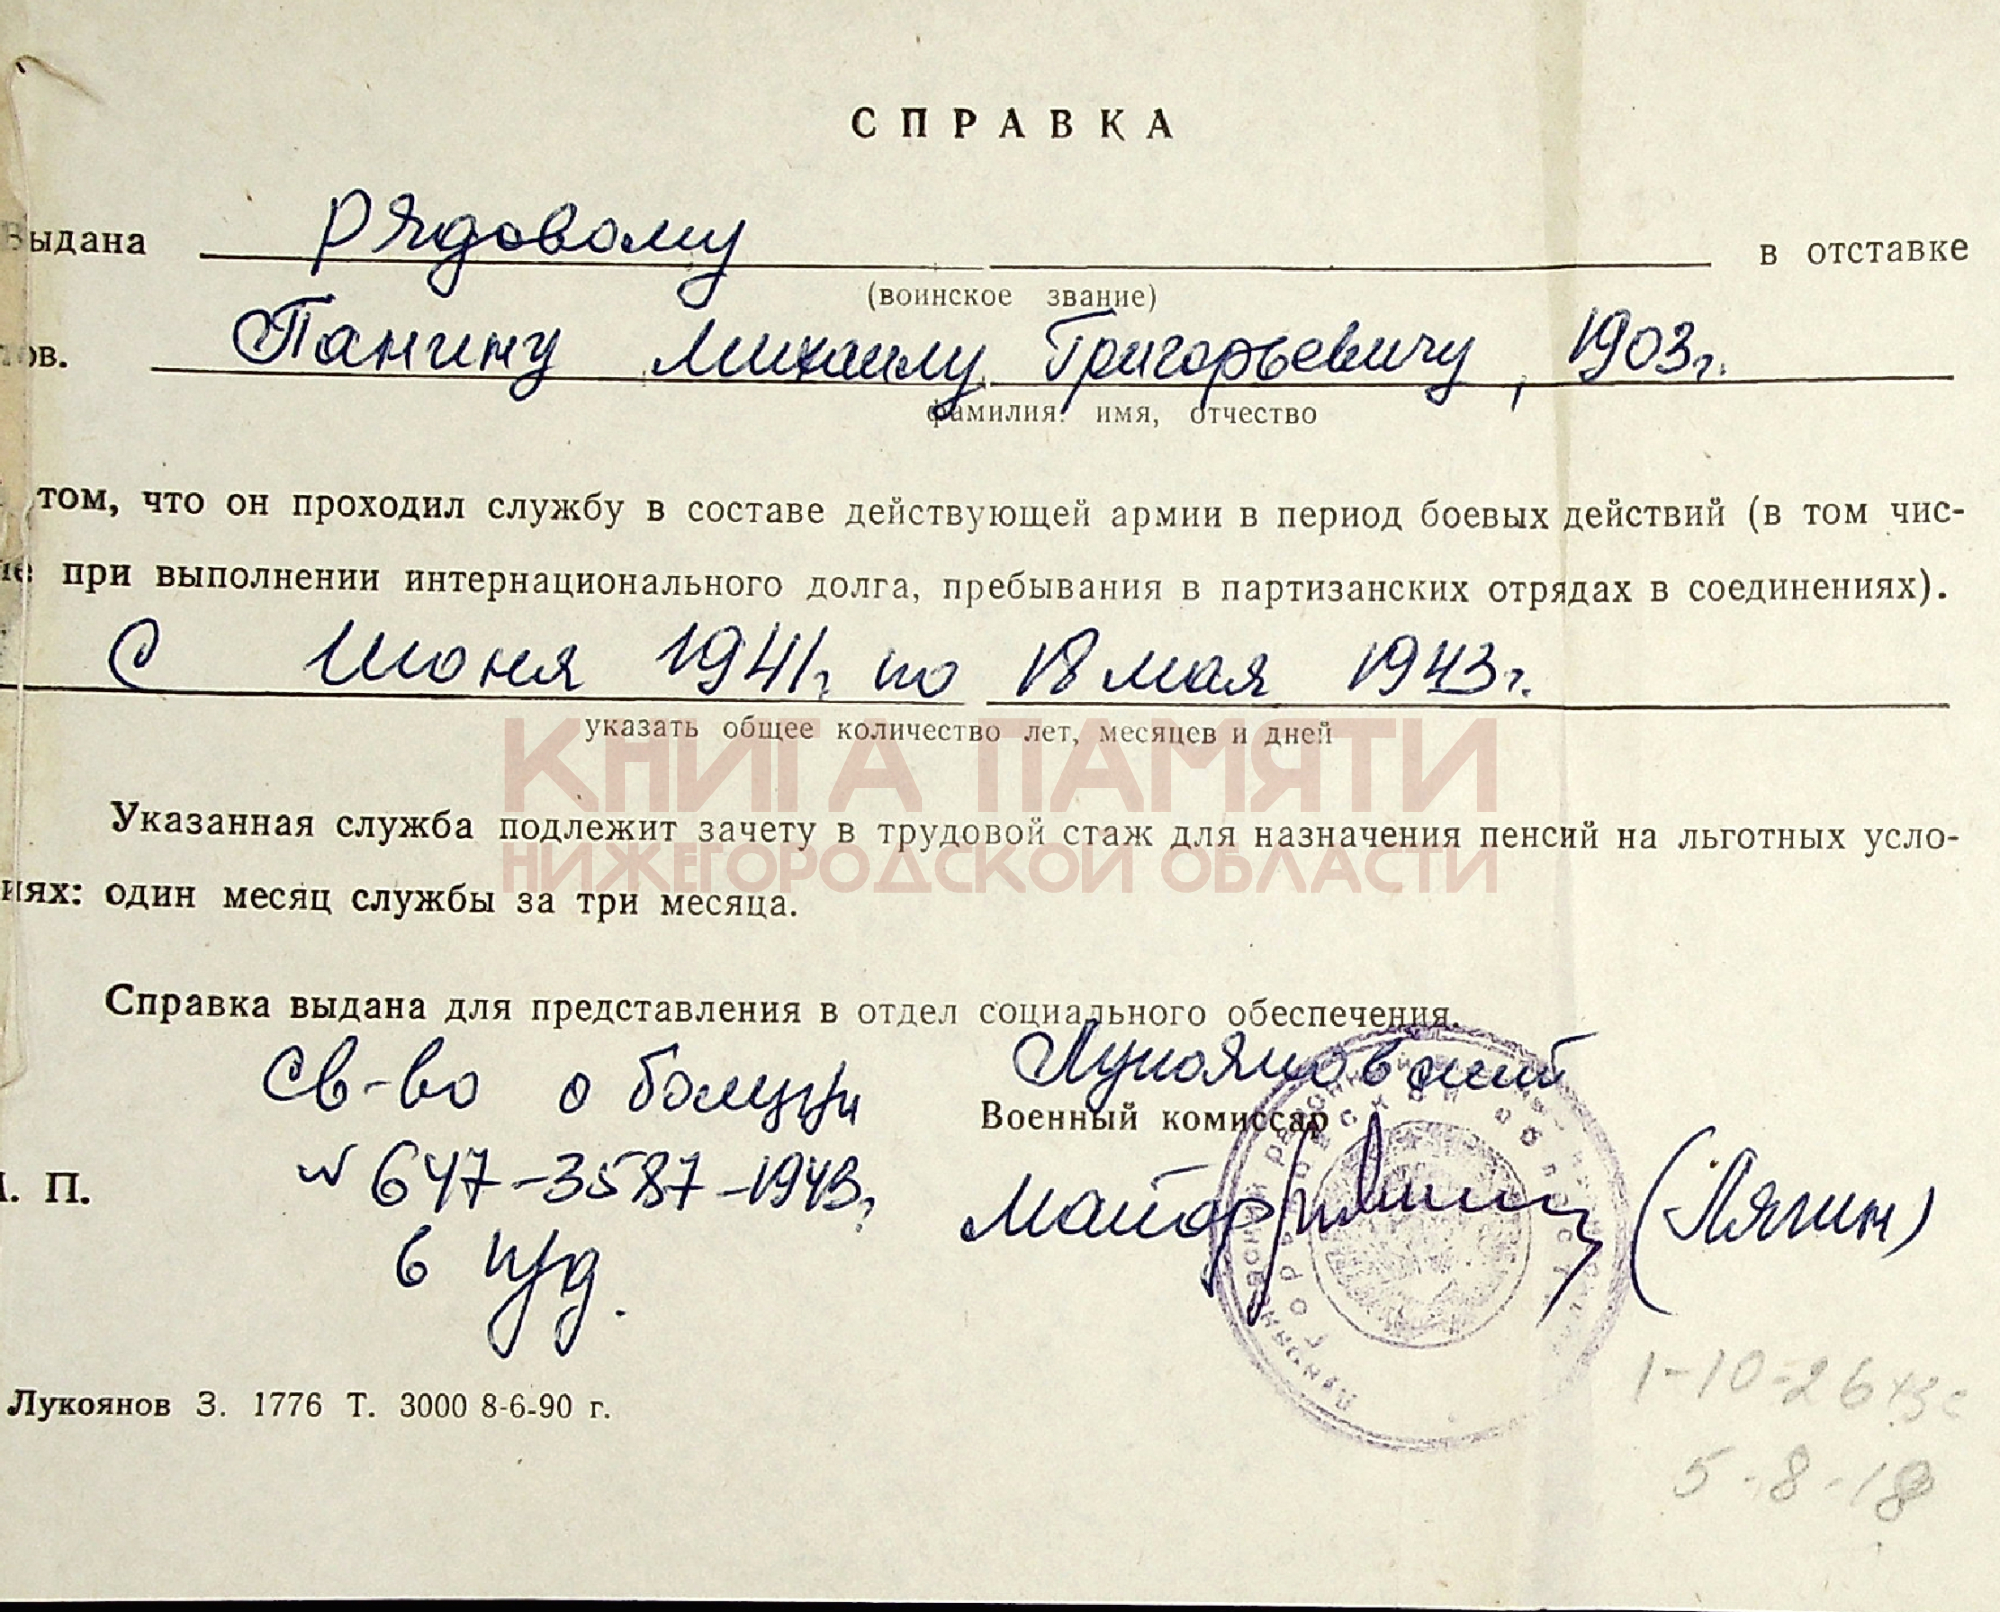 СПРАВКА
Выдана рядовому в отставке
(воинское звание)
тов. Панину Михаилу Григорьевичу, 1903г.
фамилия, имя, отчество
том, что он проходил службу в составе действующей армии в период боевых действий (в том чис-
ле при выполнении интернационального долга, пребывания в партизанских отрядах в соединениях).
С Июня 1941г. по 18 мая 1943г.
указать общее количество лет, месяцев и дней
КНИГА ПАМЯТИ
Указанная служба подлежит зачету в трудовой стаж для назначения пенсий на льготных усло-
НИЖЕГОРОДСКОЙ ОБЛАСТИ
иях: один месяц службы за три месяца.
Справка выдана для представления в отдел социального обеспечения.
Св-во о болезни Лукояновский
Военный комиссар
№ 647-3587-1943г
. П. майор (Лягин)
в п/д.
1-10-264
Лукоянов З. 1776 Т. 3000 8-6-90 г.
5-8-18